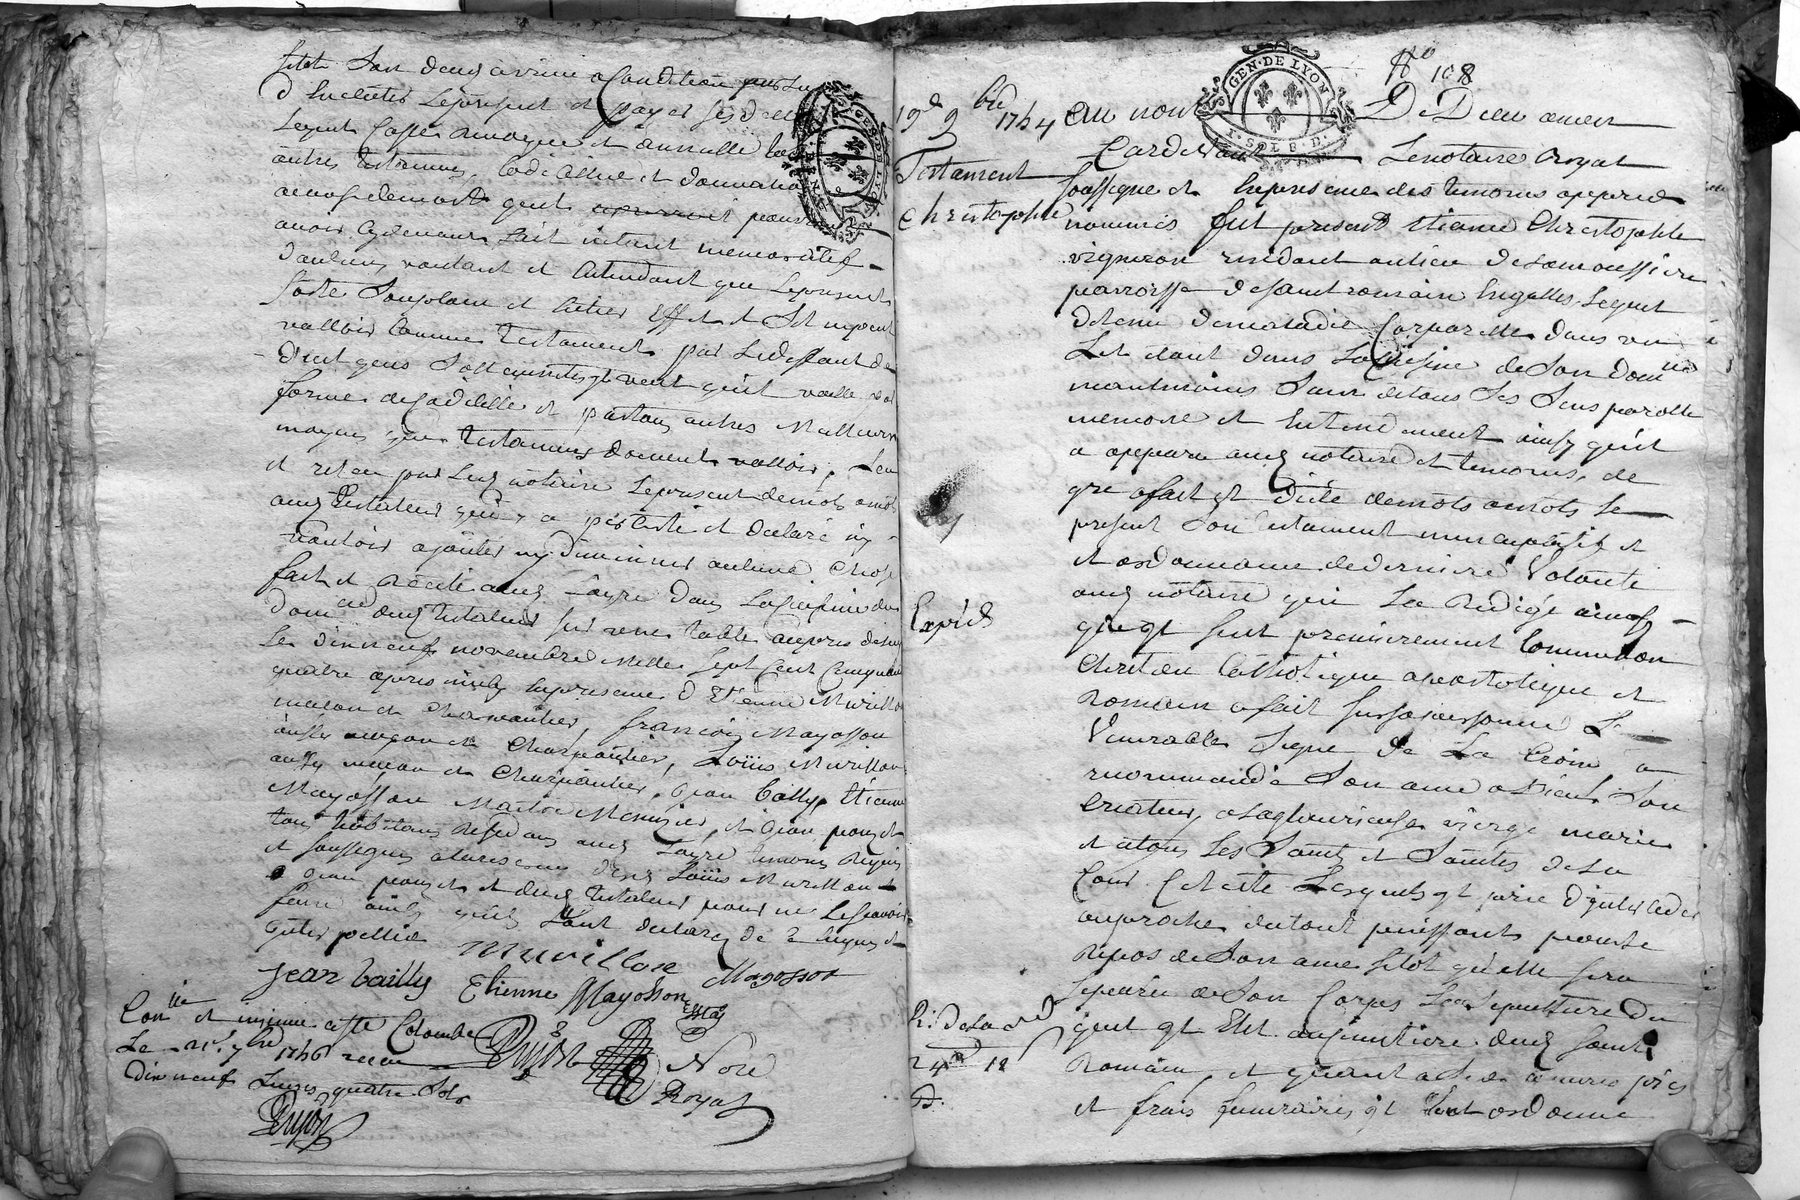 sitot Son deces arrivé a Condition
d'heriter Le present et payer ses dettes
Lequel Casse revoque et annulle tous
autres testamens, Codicilles et donnations
a cause de mort qu'il pourroit
avoir cy devant fait n'étant memoratif
d'aucuns voulant et Entendant que Le present
Sorte Son plein et Entier Effet et S'il ne peut
valloir Comme testament par Le deffaut de
droit qu'il vaille en
forme de Codicille et par tous autres Meilleurs
moyens que testamens doivent valloir, Leu
et releu par Led notaire Le present de mots a mots
aud testateur qui y a persisté et declaré n'y
vouloir ajouter ny diminuer aucune Chose
fait et recité aud Layre dans La Cuisine du
domcile dud testateur sur une table aupres de luy
Le dixneuf novembre Mille Sept Cent Cinquante
quatre apres midy En presence d'Etienne Murillon
maçon et Charpentier, françois Mayosson
aussy maçon et Charpentier, Loüis Murillon
aussy maçon et Charpentier, Jean Bailly, Etienne
Mayosson Maitre Menuisier, et Jean ponset
tous habitans Residans aud Layre temoins Requis
et soussignés a la reserve desd Loüis Murillon
Jean ponset et dud testateur pour ne Le Scavoir
faire ainsy qu'ils L'ont declaré de ce Enquis et
Interpellés
Murillon
Mayosson
Jean bailly Etienne Mayosson
Conlle et insinué a Ste Colombe
Le 21e 7bre 1746 receu
Dixneuf Livres quatre Sols
Dujon
Nore
Royal
GEN. DE LYON
No 108
19e 9bre 1754
Testament
Christophle
Expédié
R. de La
24 12
Au nom De Dieu amen
Pardevant Le notaire Royal
soussigné et En presence des temoins apprés
nommés fut present Etienne Christophle
vigneron residant au lieu de Lamoussiere
parroisse de saint romain En galles, Lequel
detenu de maladie Corporelle dans un
Lit étant dans La Cuisine de Son domlle
neantmoins Sain de tous Ses Sens parolle
memoire et Entendement ainsy qu'il
a apparu aud notaire et temoins, de
gré a fait et dicté de mots a mots Le
present Son testament nuncupatif et
et ordonnance de derniere Volonté
aud notaire qui La Redigé ainsy
que et suit premierement Comme bon
Chretien Catholique apostolique et
Romain a fait sur sa personne Le
Venerable Signe de La Croix a
recommandé Son ame a Dieu Son
Createur, a La glorieuse vierge marie
et a tous Les Saints et Saintes de La
Cour Celeste Lesquels Et prie d'interceder
auproche du tout puissant pour le
Repos de Son ame sitot qu'elle sera
separée de Son Corps La Sepulture du
quel Et Elit au cimetiere dud Saint
Romain, et quant a Ses œuvres pies
et frais funeraires, Et Veut ordonne